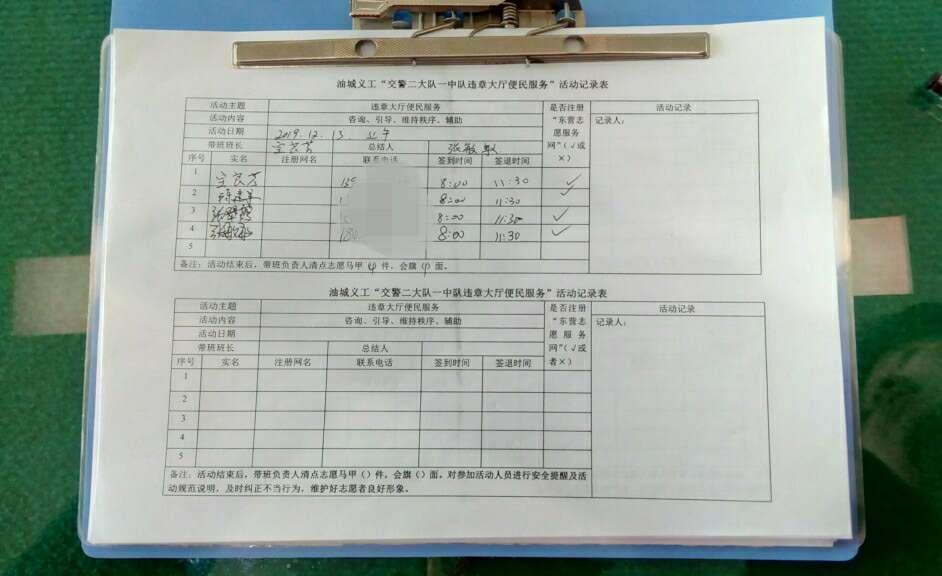 油城义工“交警二大队一中队违章大厅便民服务”活动记录表
活动主题 违章大厅便民服务 是否注册“东营志愿服务网”（√或×） 活动记录
活动内容 咨询、引导、维持秩序、辅助 记录人：
活动日期 2019.12.13.
带班班长 总结人 张敏
序号 实名 注册网名 联系电话 签到时间 签退时间
1 8:00 11:30 ✓
2 8:00 11:30 ✓
3 8:00 11:30 ✓
4 180 8:00 11:30 ✓
5
备注：活动结束后，带班负责人清点志愿马甲（4）件，会旗（1）面。
油城义工“交警二大队一中队违章大厅便民服务”活动记录表
活动主题 违章大厅便民服务 是否注册“东营志愿服务网”（√或者×） 活动记录
活动内容 咨询、引导、维持秩序、辅助 记录人：
活动日期
带班班长 总结人
序号 实名 注册网名 联系电话 签到时间 签退时间
1
2
3
4
5
备注：活动结束后，带班负责人清点志愿马甲（）件，会旗（）面。对参加活动人员进行安全提醒及活
动规范说明，及时纠正不当行为，维护好志愿者良好形象。